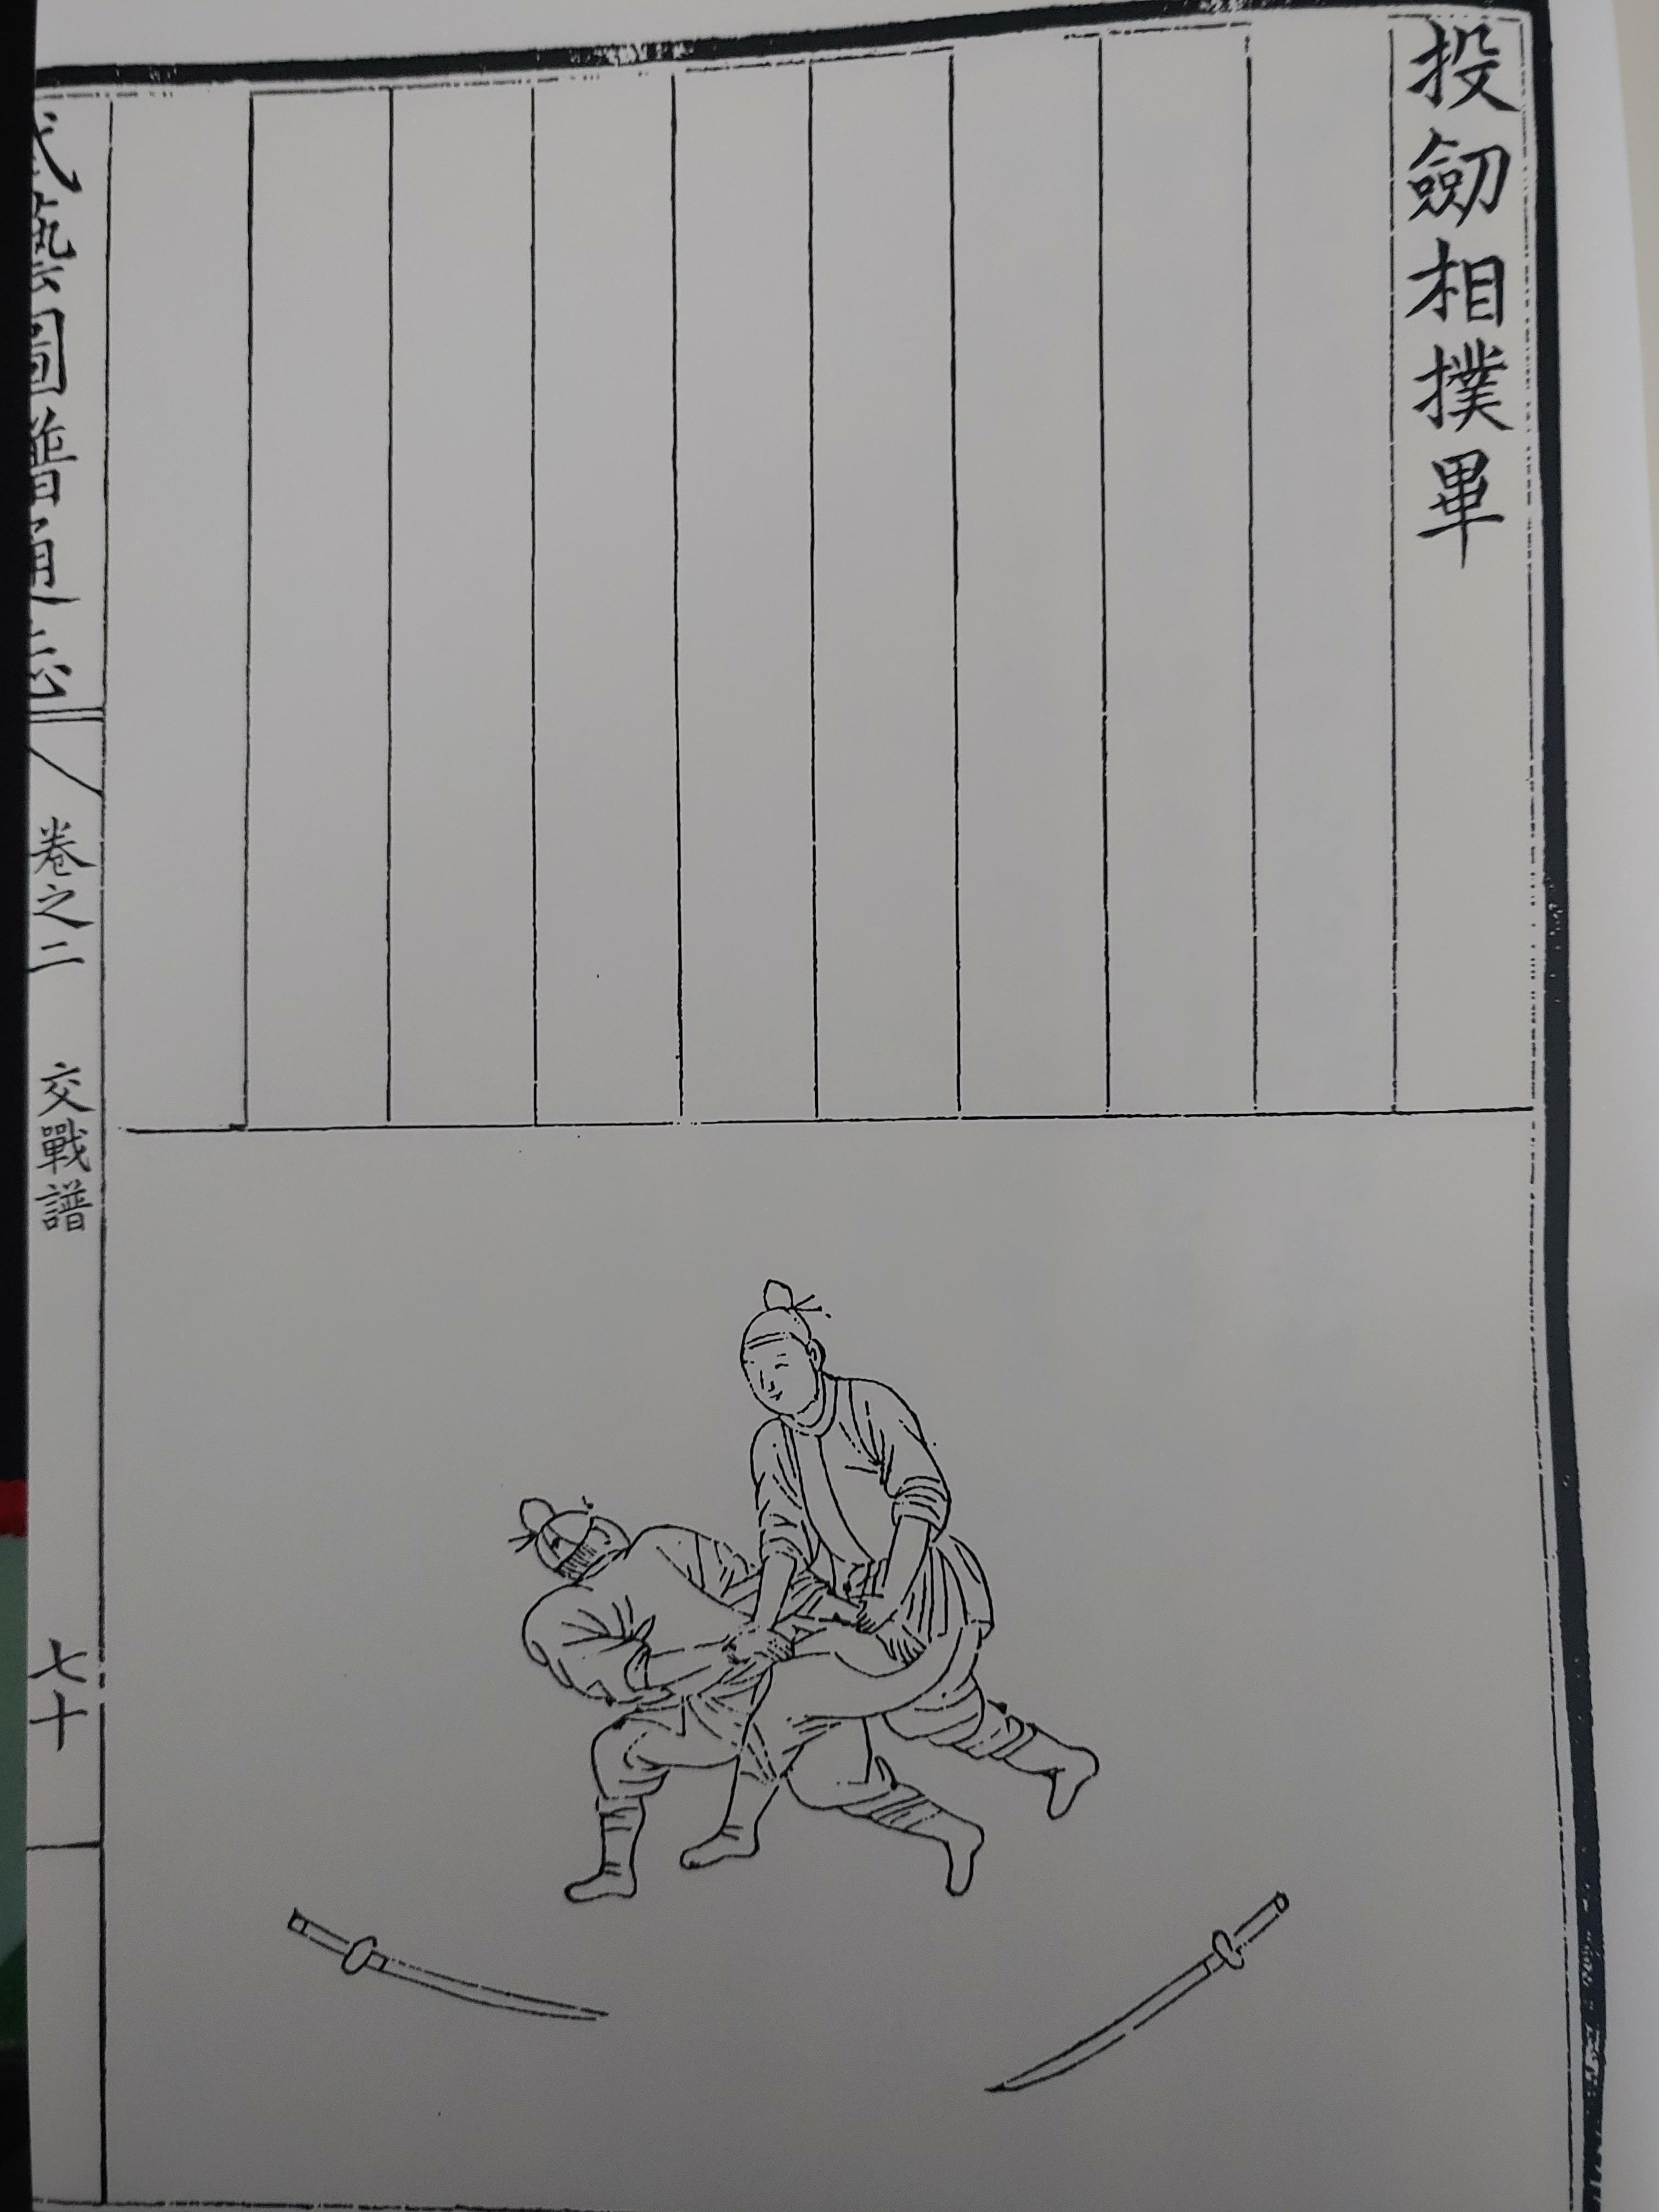 投劒相撲畢
武藝圖譜通志
卷之二
交戰譜
七十